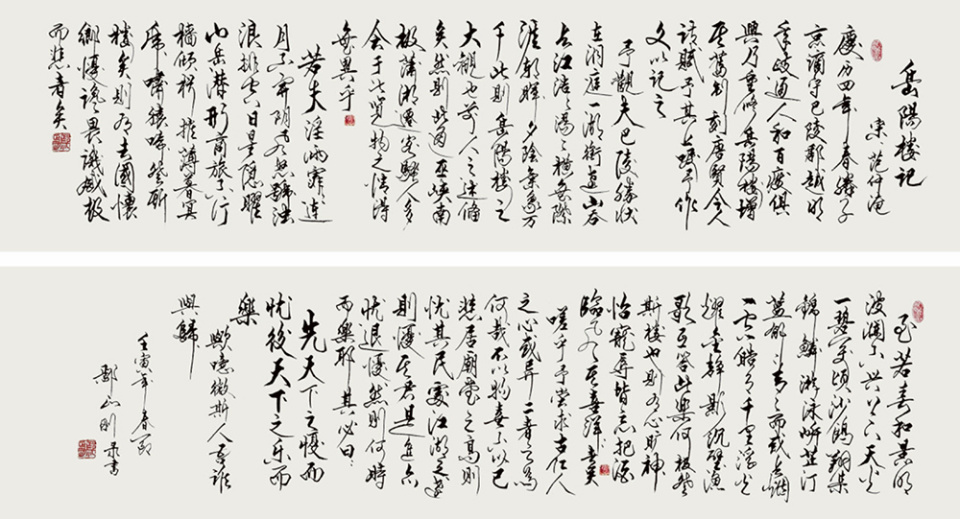 岳陽樓記
宋 范仲淹
慶历四年春滕子
京謫守巴陵郡越明
年政通人和百廢俱
興乃重修岳陽樓增
其舊制刻唐賢今人
詩賦于其上屬予作
文以記之
予觀夫巴陵勝狀
在洞庭一湖銜遠山吞
長江浩浩湯湯橫無際
涯朝暉夕陰氣象万
千此則岳陽樓之
大觀也前人之述備
矣然則北通巫峽南
極瀟湘遷客騷人多
会于此覽物之情得
無異乎
若夫淫雨霏霏連
月不開陰風怒號濁
浪排空日星隱曜
山岳潛形商旅不行
檣傾楫摧薄暮冥
虎嘯猿啼登斯
樓矣則有去國懷
鄉憂讒畏譏感極
而悲者矣
至若春和景明
波瀾不驚上下天光
一碧万頃沙鷗翔集
錦鱗游泳岸芷汀
蘭郁郁青青而或長烟
一空皓月千里浮光
耀金靜影沉璧漁
歌互答此樂何極登
斯樓也則有心曠神
怡寵辱皆忘把酒
臨風其喜洋洋者矣
嗟乎予嘗求古仁人
之心或異二者之為
何哉不以物喜不以己
悲居廟堂之高則
憂其民處江湖之遠
則憂其君是進亦
憂退亦憂然則何時
而樂耶其必曰
先天下之憂而
憂後天下之乐而
樂
歟噫微斯人吾誰
與歸
壬寅年春節